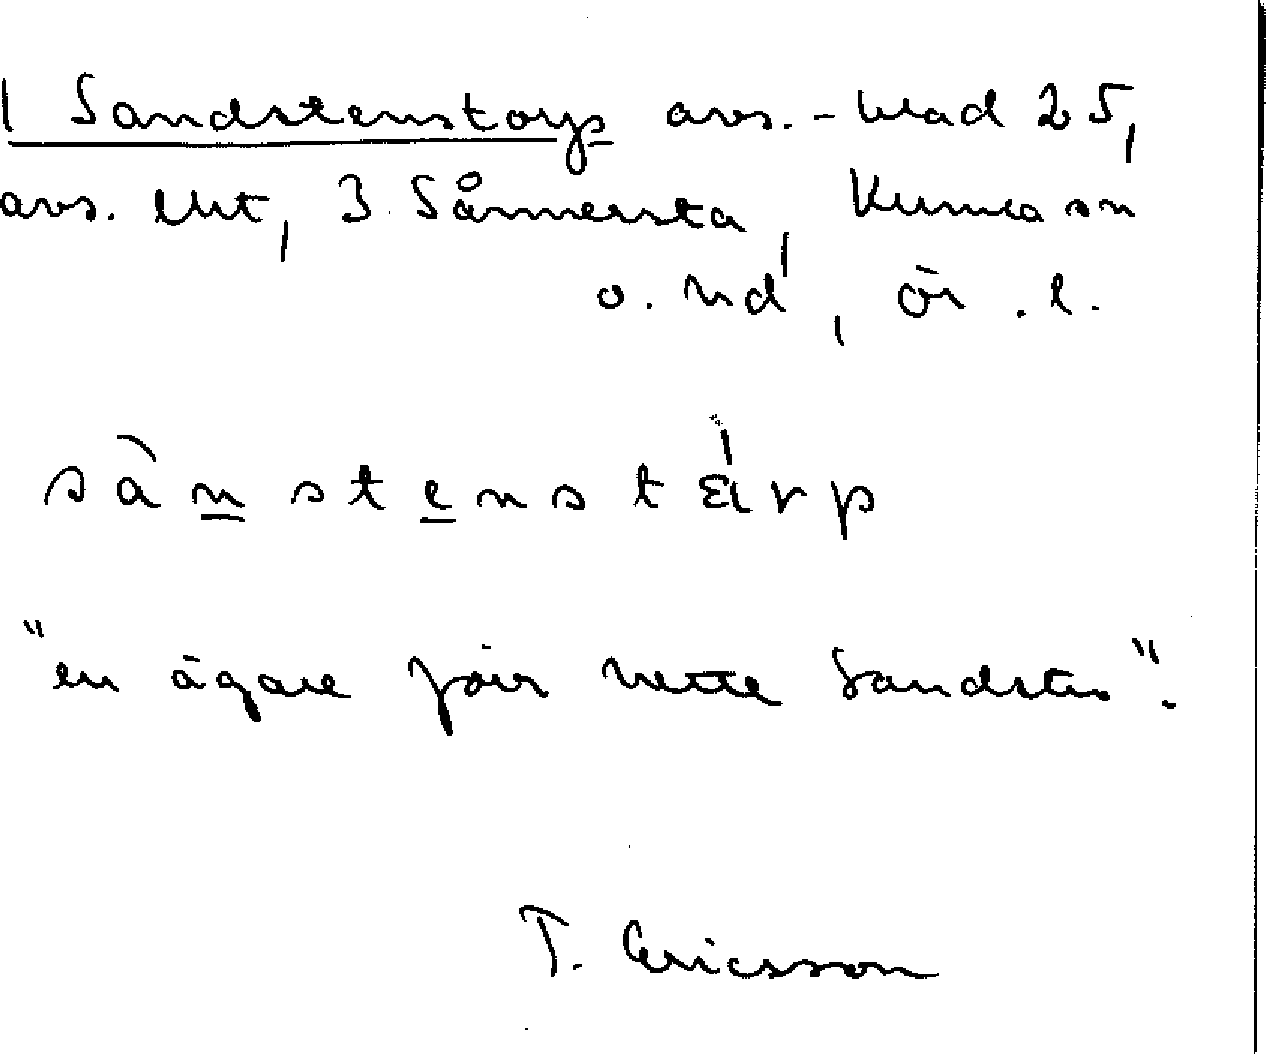 1 Sandstenstorp avs. - blad 25,
avs. Elit, 3 Sånnersta, Kumla sn
o. hd, Ör. l.
sànstenstárp
"en ägare förr hette Sandsten".
T. Ericsson